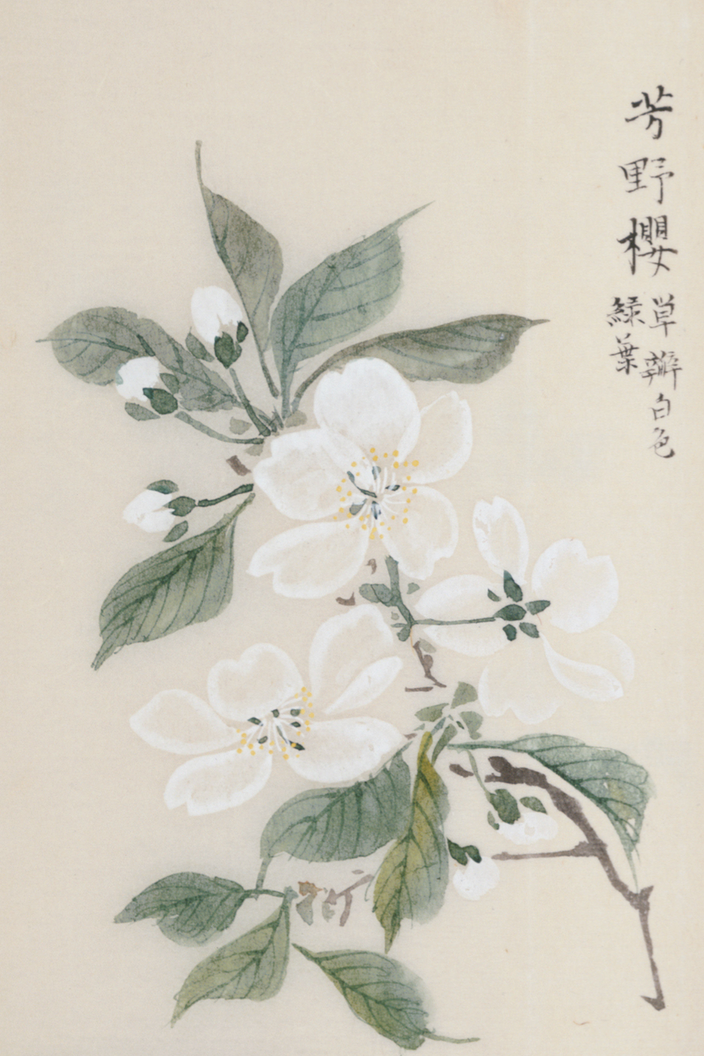 芳野櫻
草瓣白色
緑葉